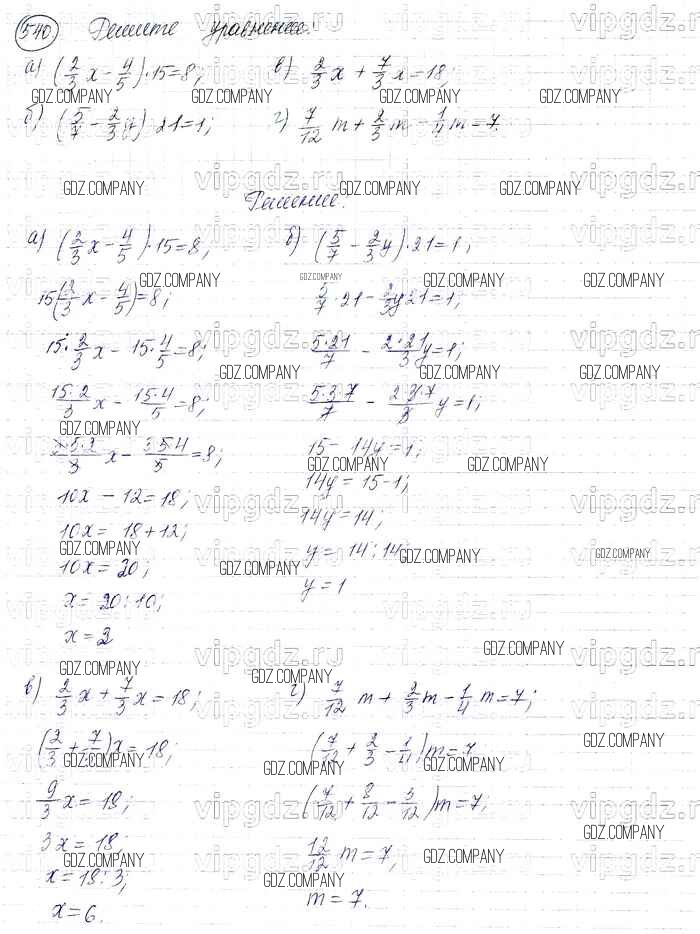 540 Решите уравнение:
а) (2/3 x − 4/5)·15=8; в) 2/3 x + 7/3 x = 18;
б) (5/7 − 2/3 y)·21=1; г) 7/12 m + 2/3 m − 1/4 m = 7.
Решение.
а) (2/3 x − 4/5)·15=8;
15(2/3 x − 4/5)=8;
15·2/3 x − 15·4/5=8;
15·2/3 x − 15·4/5=8;
3·5·2/3 x − 3·5·4/5=8;
10x − 12=18;
10x = 18+12;
10x = 20;
x = 20:10;
x = 2
б) (5/7 − 2/3 y)·21=1;
5/7·21 − 2/3 y 21=1;
5·21/7 − 2·21/3 y=1;
5·3·7/7 − 2·3·7/3 y=1;
15 − 14y=1;
14y = 15−1;
14y = 14;
y = 14:14;
y = 1
в) 2/3 x + 7/3 x = 18;
(2/3 + 7/3)x = 18;
9/3 x = 18;
3x = 18;
x = 18:3;
x = 6.
г) 7/12 m + 2/3 m − 1/4 m = 7;
(7/12 + 2/3 − 1/4)m = 7
(7/12 + 8/12 − 3/12)m = 7;
12/12 m = 7;
m = 7.
vipgdz.ru
GDZ.COMPANY